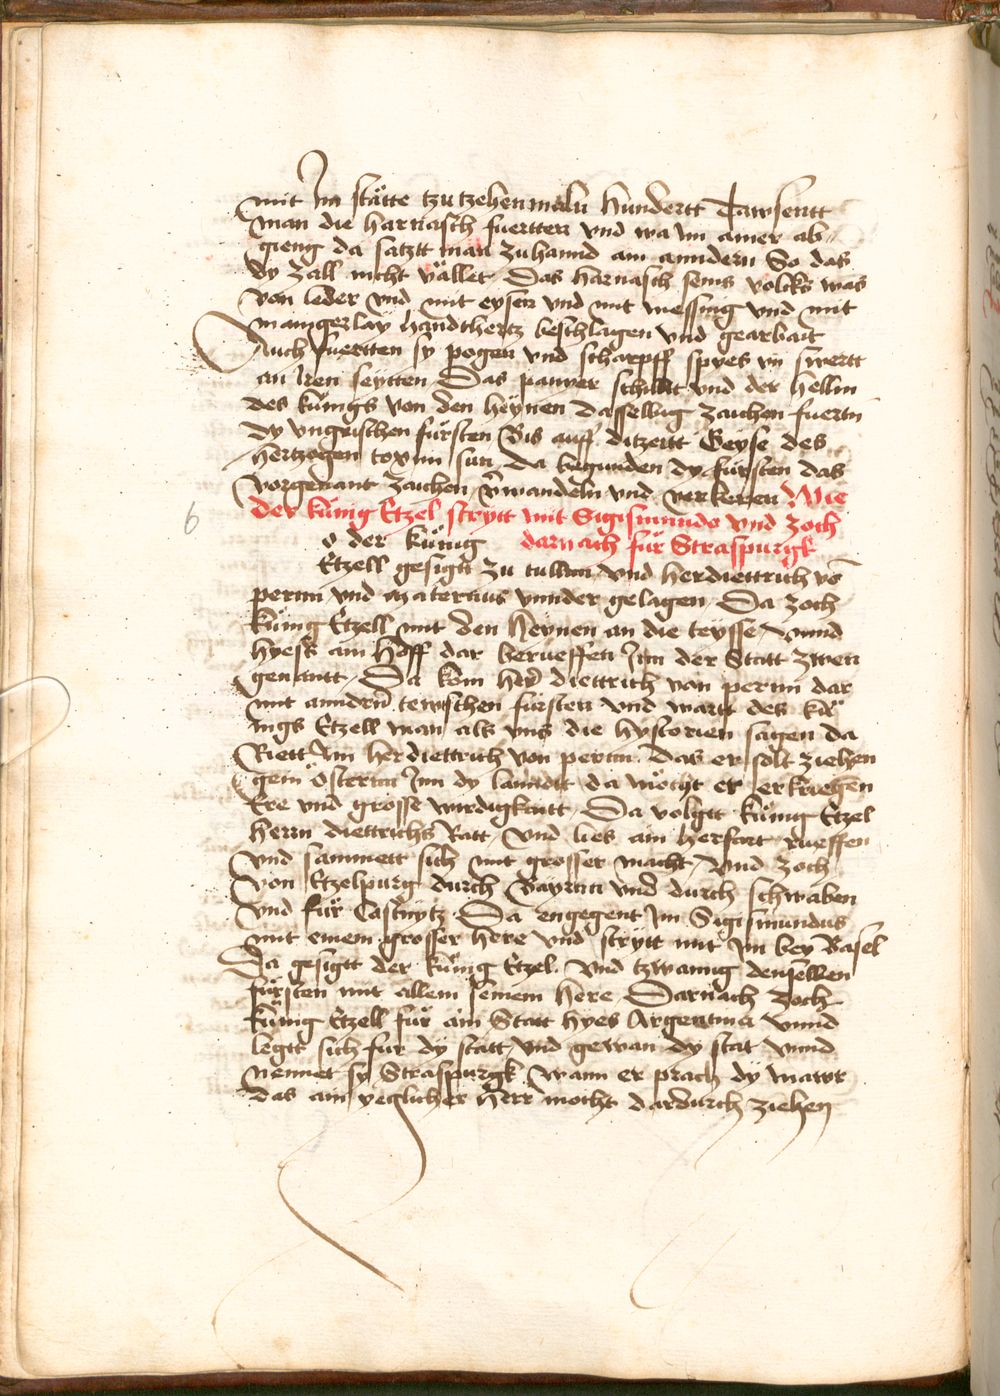 mit Im stätte tzu tzehenmaln hundertt Tawsentt
man die harnasch fuertten vnd wa im ainer ab
gieng da satztt man zuhannd ain anndern So das
dy zall nicht vället Das harnasch seins volcks was
von leder vnd mit eysen vnd mit messing vnd mit
manigerlay handthertz beschlagen vnd gearbait
Auch fuertten sy pogen vnd scharpff spyes vn swertt
an iren seytten Das panner schillt vnd der hellm
des kunigs von den heynen dasselbig zaichen fuertn
dy vngrischen fursten Bis auff ditzeitt Geyse des
hertzogen toxim sun Da begunden dy fursten das
vorgenant zaichen verwandeln vnd verkeren Wie
der kunig Etzel strytt mit Sigismundo vnd zoch
6
o der kunig darnach fur Straspurgk
Etzell gesigtt zu tullnn vnd herdiettrich vo
pernn vnd Maternus vnnder gelagen Da zoch
kunig Etzell mit den heynen an die teysse vnnd
hyess ain hoff dar berueffen Inn der Statt zwen
genantt Da kom her diettrich von pernn dar
mit anndern tewtschen fursten vnd wartt des ku
nigs Etzell man als vns die hystorien sagen da
Riett Im herdiettrich von pernn Das er solt ziehen
gein Osternn Inn dy lanndt da mocht er erkriegen
Ere vnd grosse wirdigkaitt Da volgtt kunig Etzel
herrn diettrichs Ratt vnd lies ain herfart rueffen
vnd sammett sich mit grosser macht vnd zoch
von Etzelpurg durch Bayrnn vnd durch schwaben
vnd fur Costnytz Da engegent im Sigismundus
mit einem grosser here vnd strytt mit im bey Basel
Da gesigtt der kunig Etzel vnd tzwanng denselben
fursten mit allem seinem here Darnach zoch
kunig Etzell fur ain Statt hyes Argentina vnnd
legtt sich fur dy statt vnd gewan dy stat vnnd
nennet sy Straspurgk wann er prach dy mawr
das ain yeglicher herr mocht dardurch ziehen